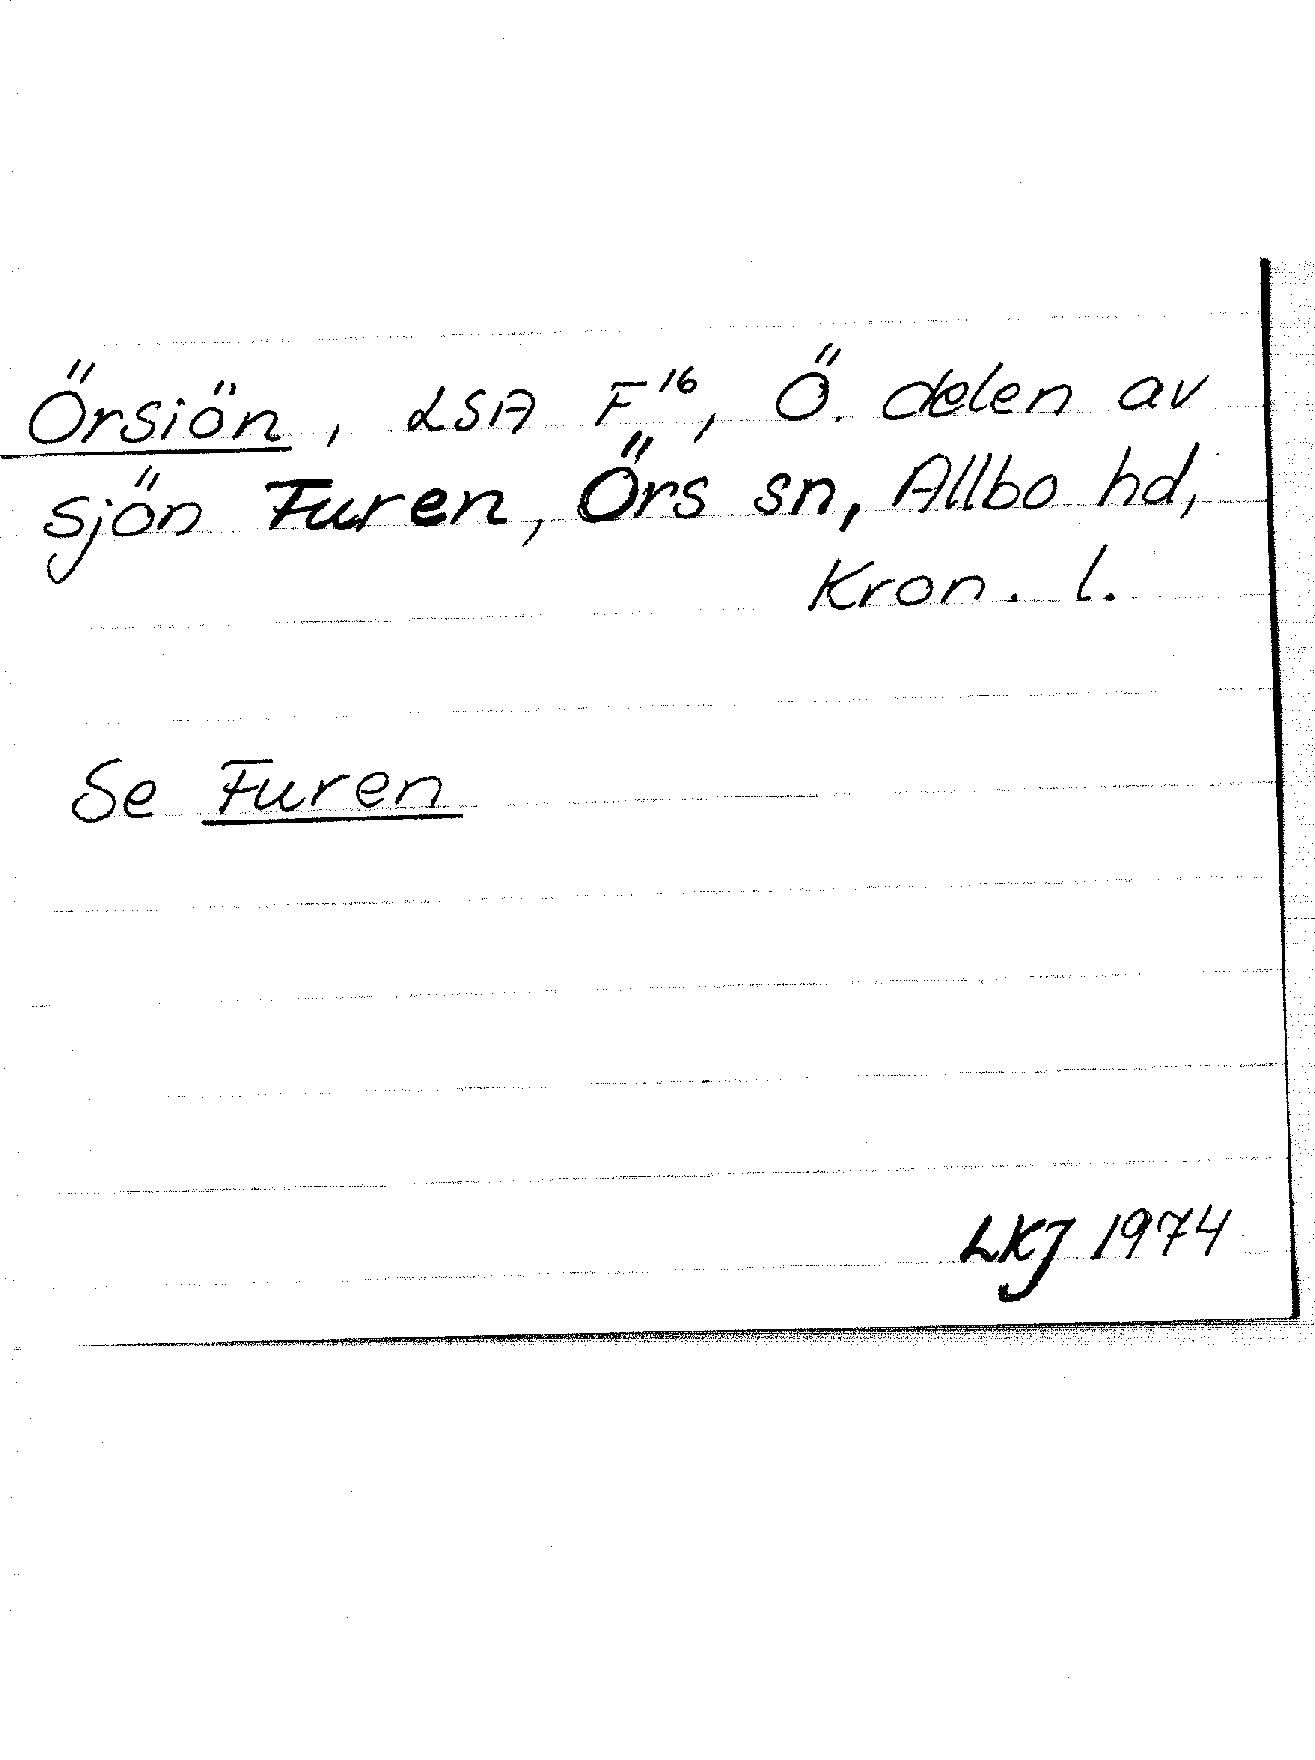 Örsiön, LSA F¹⁶, Ö. delen av
sjön Furen, Örs sn, Allbo hd,
Kron. l.
Se Furen
LKJ 1974